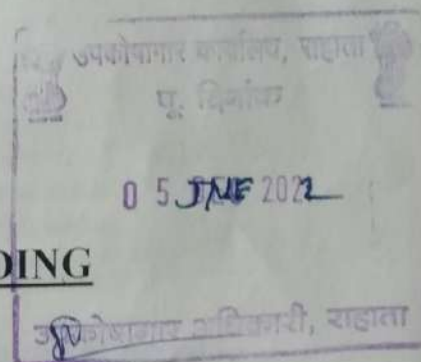 उपकोषागार कार्यालय, राहाता
पु. दिनांक
0 5 JNE 2022
DING
उपकोषागार अधिकारी, राहाता